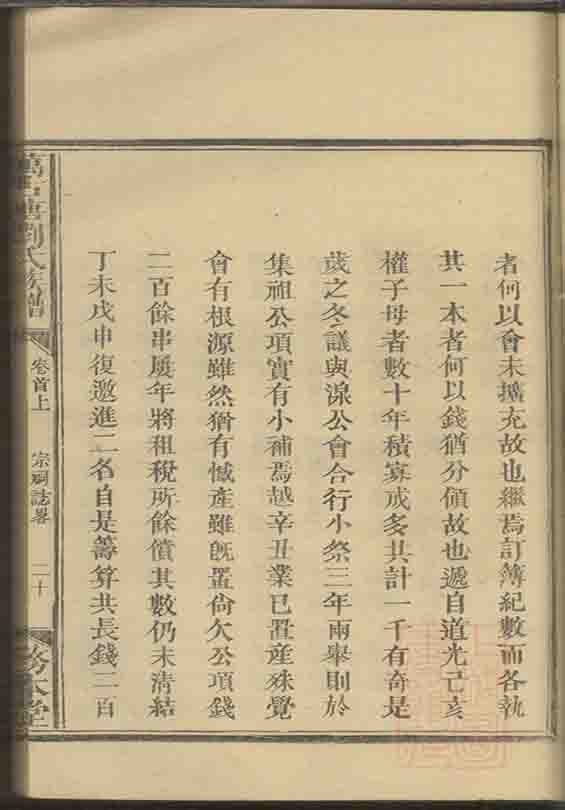 者何以會未擴充故也繼焉訂簿紀數而各執
其一本者何以錢猶分領故也遞自道光己亥
權子母者數十年積寡成多共計一千有奇是
歲之冬議與湶公會合行小祭三年兩舉則於
集祖公項實有小補焉越辛丑業已置産殊覺
會有根源雖然猶有憾產雖旣置尙欠公項錢
二百餘串屢年將租稅所餘償其數仍未清結
丁未戊申復邀進二名自是籌算共長錢三百
劉氏族譜
卷首上
宗祠誌畧
二十
務本堂